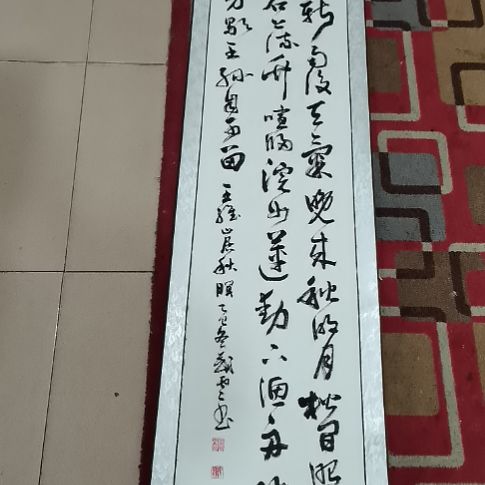 新雨後天氣晚来秋明月松間照
石上流竹喧歸浣女蓮動下漁舟
芳歇王孫自可留
王維山居秋暝乙巳冬書